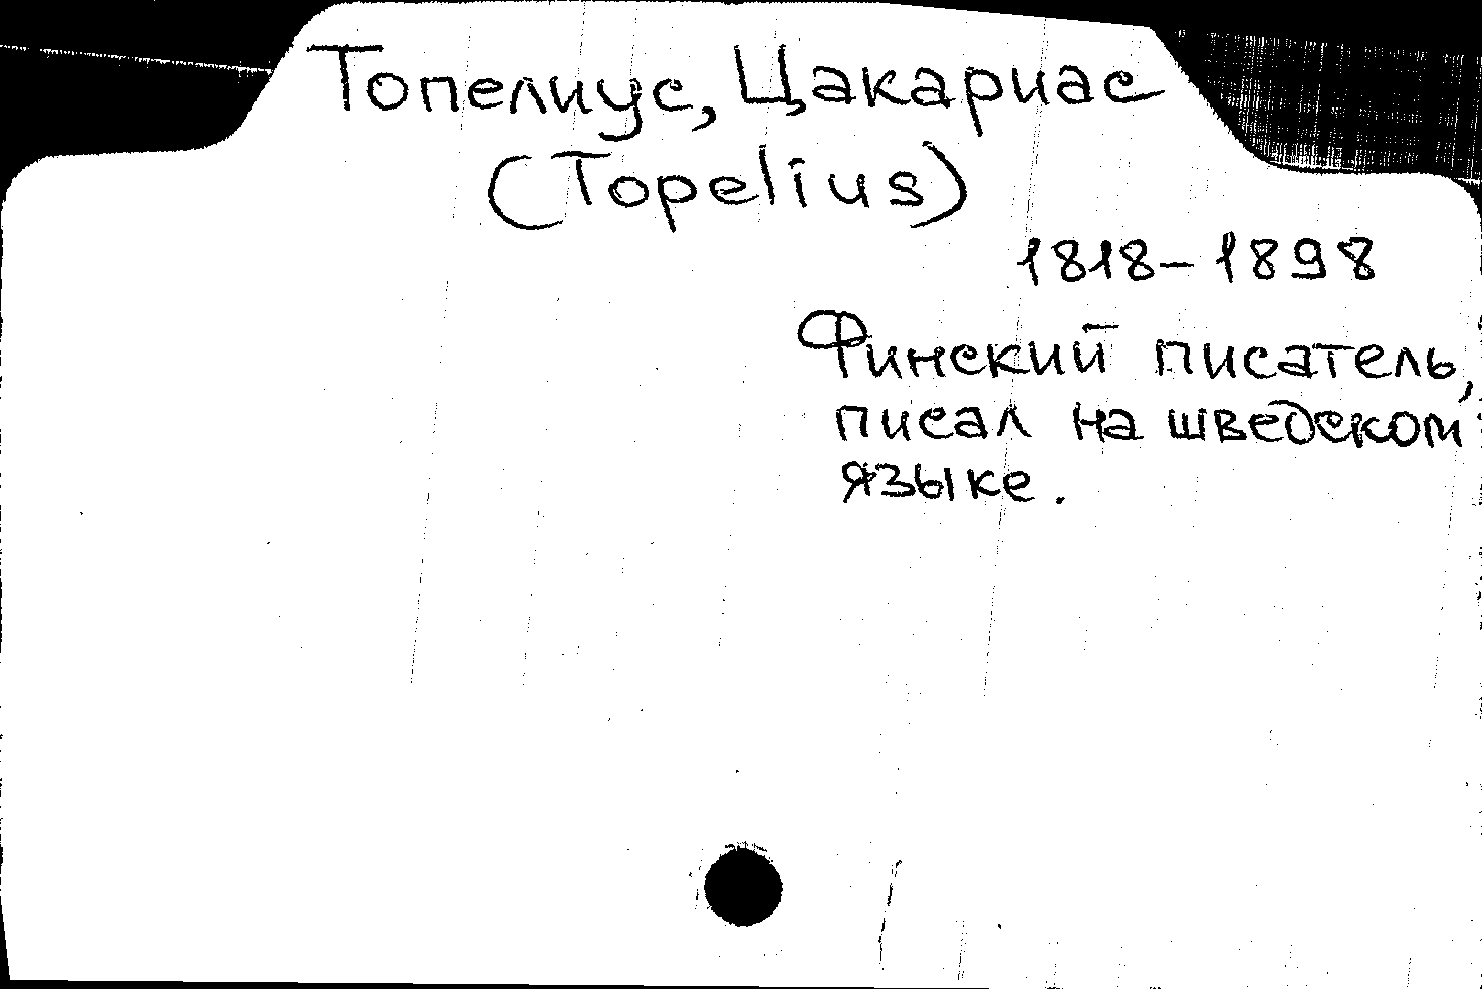 Топелиус, Цакариас
(Topelius)
1818–1898
Финский писатель,
писал на шведском
языке.